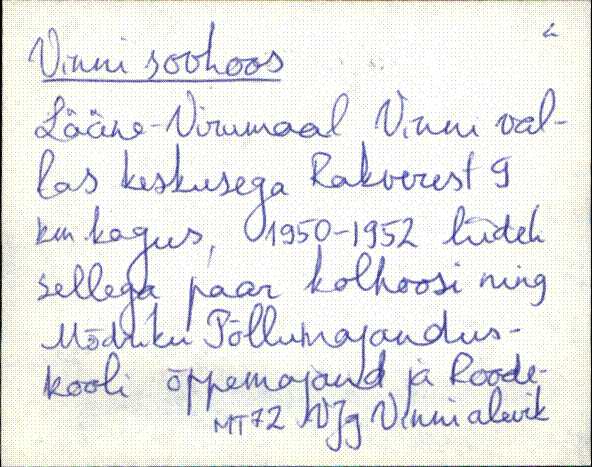 Vinni sovhoos
Lääne-Virumaal Vinni val-
las keskusega Rakverest 9
km kagus, 1950-1952 liideti
sellega paar kolhoosi ning
Mõdriku Põllumajandus-
kooli õppemajand ja Roode-
MT72 VJg Vinni alevik